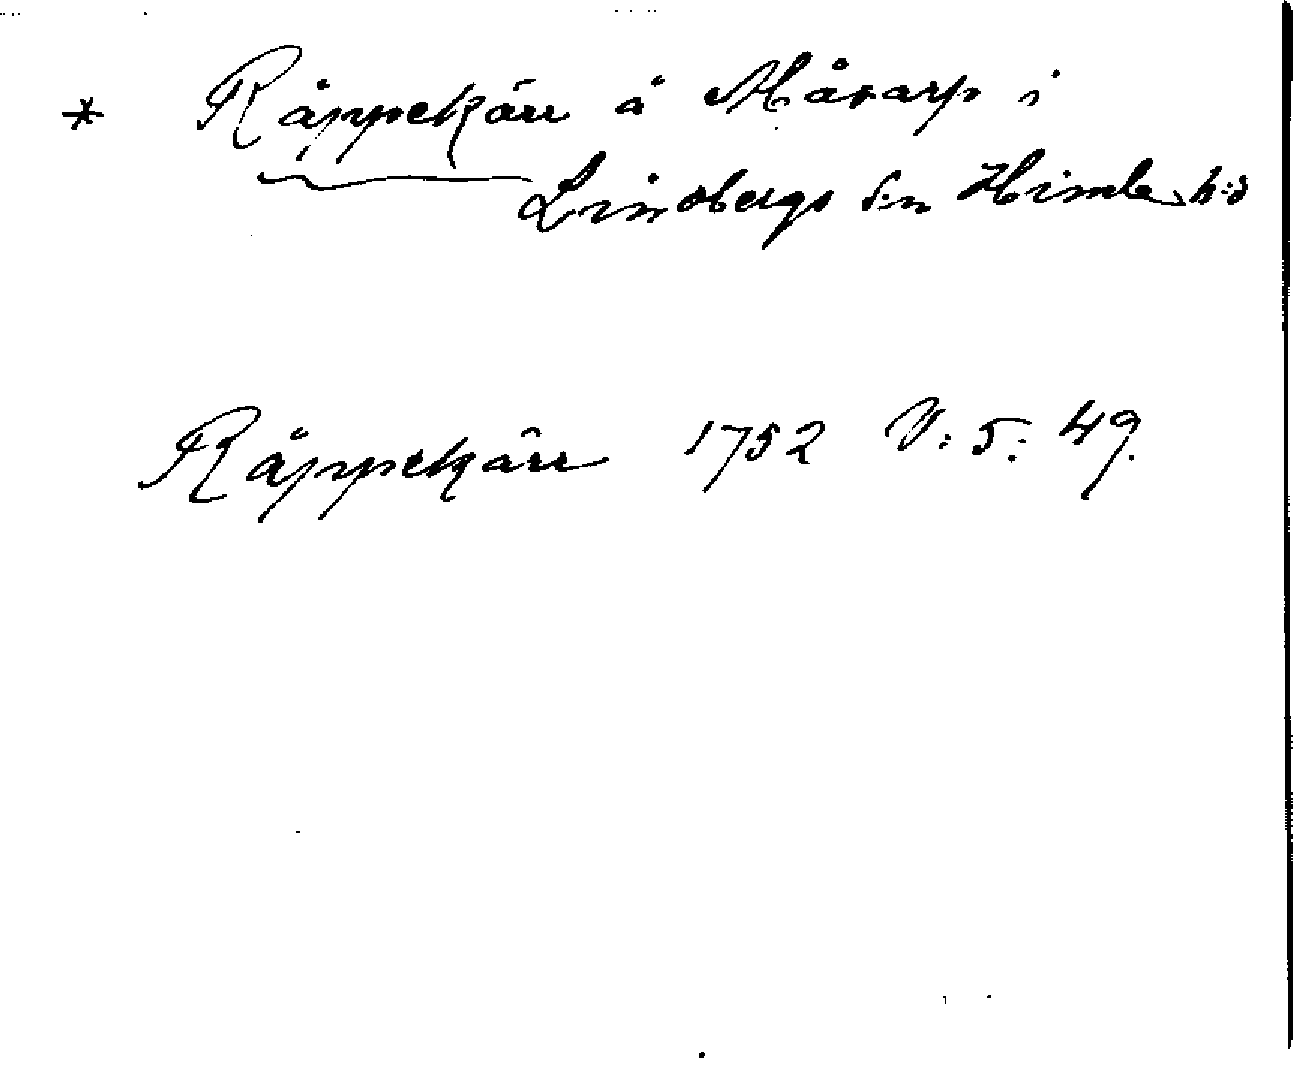 * Råppekärr å Måsarp i
Lindbergs s:n Himle h:d
Råppekärr 1752 V: 5: 49.